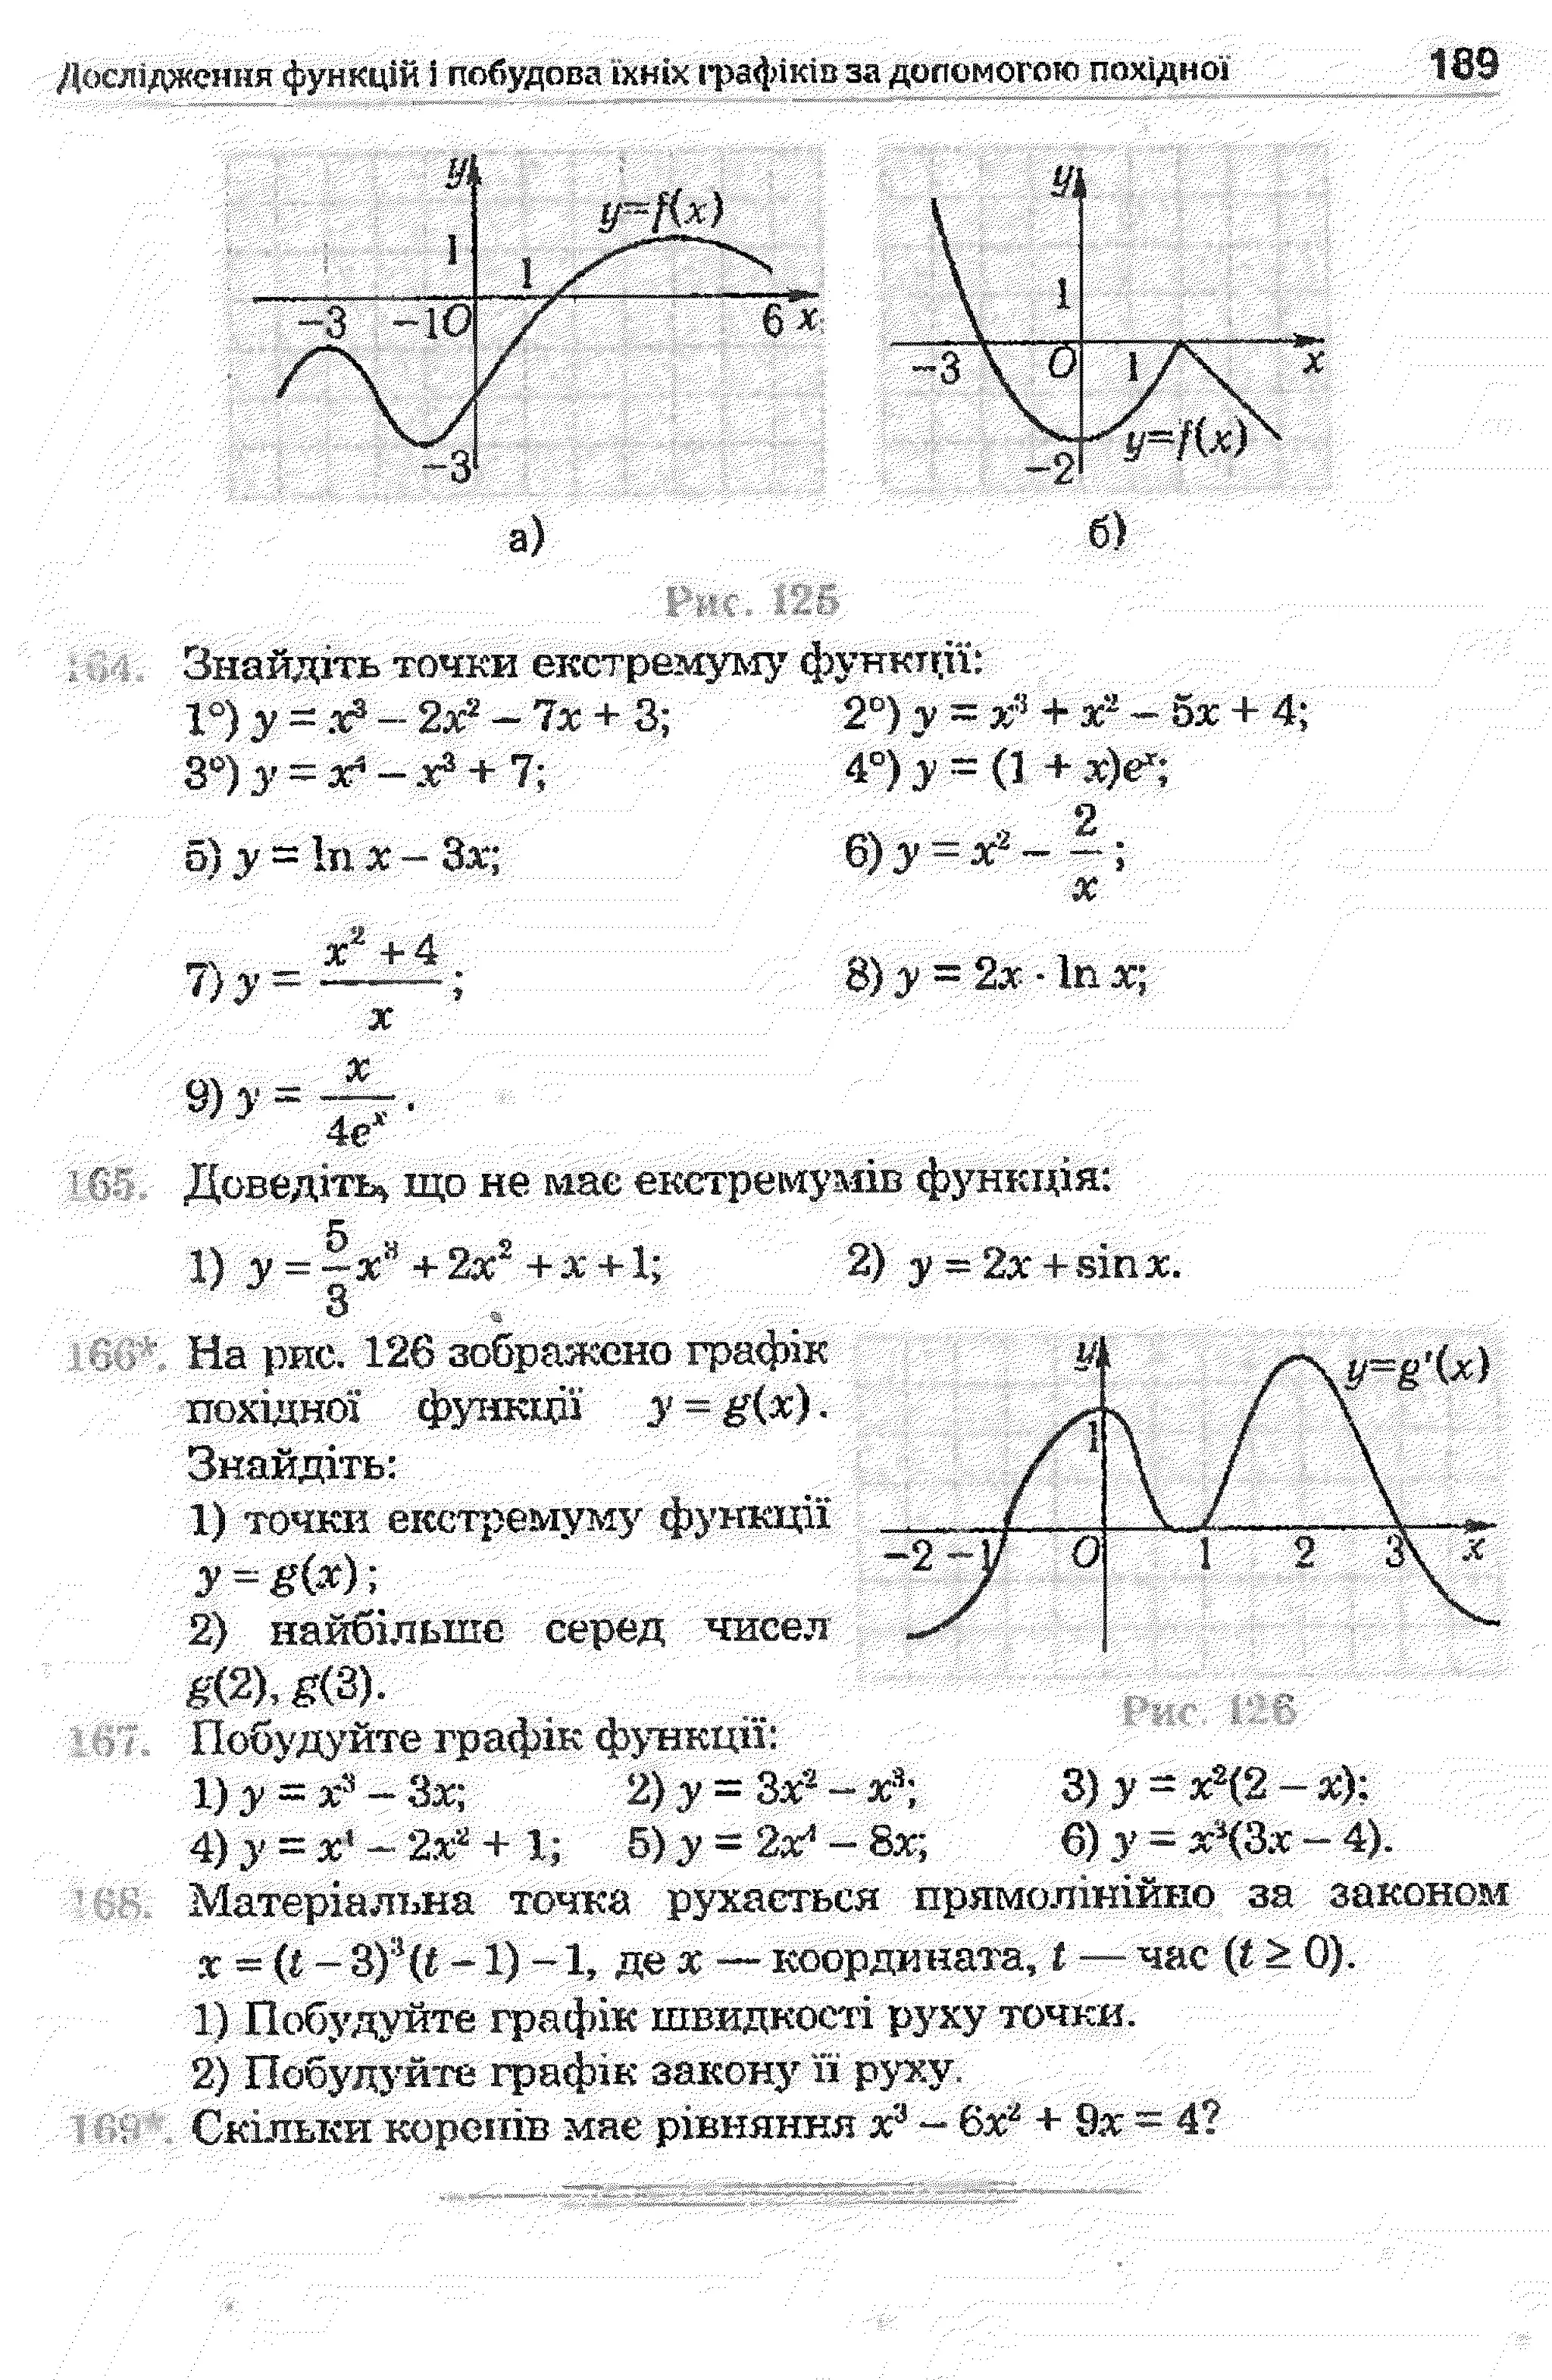 Дослідження функцій і побудова їхніх графіків за допомогою похідної 189
y y=f(x) 1 1 -3 -1 O 6 x -3
y 1 -3 O 1 x y=f(x) -2
а) б)
Рис. 125
164. Знайдіть точки екстремуму функції:
1°) y = x³ – 2x² – 7x + 3; 2°) y = x³ + x² – 5x + 4;
3°) y = x⁴ – x³ + 7; 4°) y = (1 + x)eˣ;
5) y = ln x – 3x; 6) y = x² – 2/x;
7) y = (x² + 4)/x; 8) y = 2x · ln x;
9) y = x/(4eˣ).
165. Доведіть, що не має екстремумів функція:
1) y = 5/3 x³ + 2x² + x + 1; 2) y = 2x + sin x.
166*. На рис. 126 зображено графік
похідної функції y = g(x).
Знайдіть:
1) точки екстремуму функції
y = g(x);
2) найбільше серед чисел
g(2), g(3).
y y=g'(x) 1 -2 -1 O 1 2 3 x
Рис. 126
167. Побудуйте графік функції:
1) y = x³ – 3x; 2) y = 3x² – x³; 3) y = x²(2 – x);
4) y = x⁴ – 2x² + 1; 5) y = 2x⁴ – 8x; 6) y = x³(3x – 4).
168. Матеріальна точка рухається прямолінійно за законом
x = (t – 3)³(t – 1) – 1, де x — координата, t — час (t ≥ 0).
1) Побудуйте графік швидкості руху точки.
2) Побудуйте графік закону її руху.
169*. Скільки коренів має рівняння x³ – 6x² + 9x = 4?